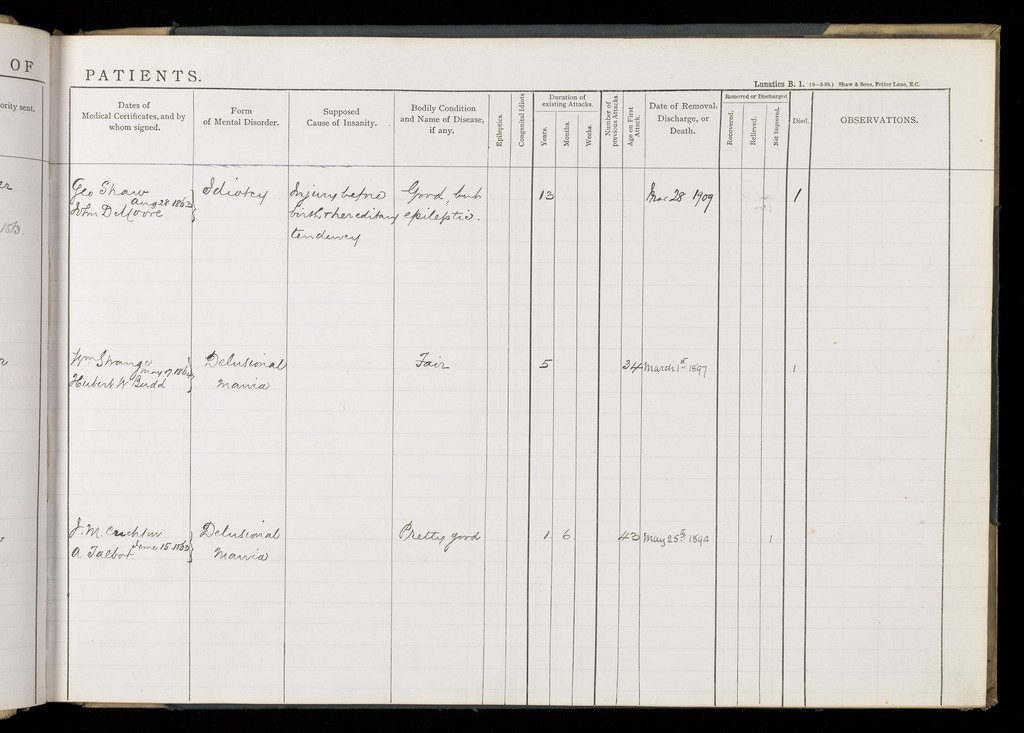 OF
PATIENTS.
Lunatics B. 1. (6—5-90.) Shaw & Sons, Fetter Lane, E.C.
ority sent.
Dates of
Medical Certificates, and by
whom signed.
Form
of Mental Disorder.
Supposed
Cause of Insanity.
Bodily Condition
and Name of Disease,
if any.
Epileptics.
Congenital Idiots
Duration of
existing Attacks.
Years.
Months.
Weeks.
Number of
previous Attacks
Age on First
Attack.
Date of Removal,
Discharge, or
Death.
Removed or Discharged.
Recovered.
Relieved.
Not Improved.
Died.
OBSERVATIONS.
Geo Shaw
Aug 28 1863
John D Moore
Idiotcy
Injury before
birth & hereditary
tendency
Good, but
epileptic.
13
Mar 28 1909
1
Wm Strange
May 17
Hubert W Budd
Delusional
mania
Fair
5
34
March 1st 1897
1
J. M.
June 15 1863
A Talbot
Delusional
Mania
Pretty good
1 6
43
May 25th
1